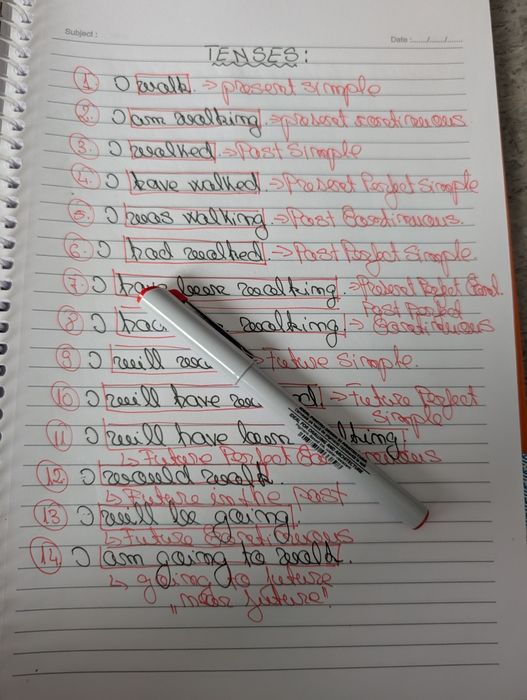 Subject :
Date :....../....../......
TENSES:
1. I walk. → present simple
2. I am walking. → present continuous.
3. I walked. → Past Simple
4. I have walked. → Present Perfect Simple
5. I was walking → Past Continuous.
6. I had walked. → Past Perfect Simple.
7. I have been walking. → Present Perfect Cont.
8. I walking → Past Perfect Continuous
9. I will → Future Simple.
10. I will have → Future Perfect Simple
11. I will have been walking
↳ Future Perfect Continuous
12. I would walk.
↳ Future in the past
13. I will be going.
↳ Future Continuous
14. I am going to walk.
↳ going to future
"near future".